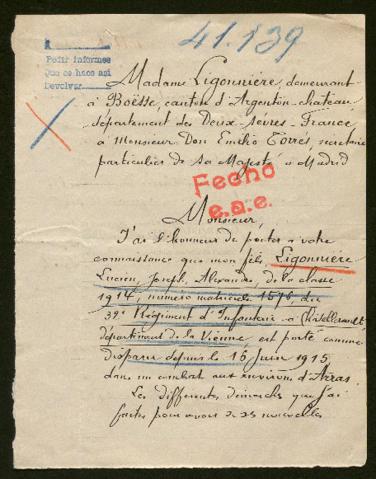 41.139
Pedir informes
Que se hace aqi
Devolver
Madame Ligonnière, demeurant
à Boësse, canton d'Argenton-château
département des Deux-sèvres-France
à Monsieur Don Emilio Torrés, secrétaire
particulier de sa Majesté, à Madrid
Fecho
e.a.e.
Monsieur,
J'ai l'honneur de porter à votre
connaissance que mon fils, Ligonnière
Lucien, Joseph, Alexandre, de la classe
1914, numéro matricule 1576, du
32e Régiment d'Infanterie à Châtellerault
département de la Vienne est porté comme
disparu depuis le 16 juin 1915
dans un combat aux environs d'Arras.
Les différentes démarches que j'ai
faites pour avoir de ses nouvelles